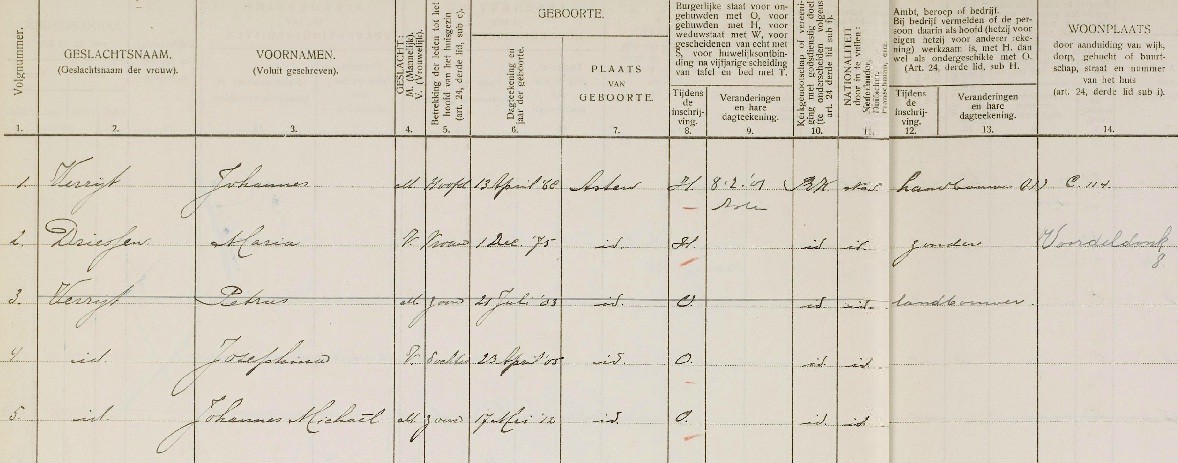 Volgnummer.
1.
GESLACHTSNAAM.
(Geslachtsnaam der vrouw).
2.
VOORNAMEN.
(Voluit geschreven).
3.
GESLACHT:
M. (Mannelijk).
V. (Vrouwelijk).
4.
Betrekking der leden tot het
hoofd van het huisgezin
(art. 24, derde lid, sub c).
5.
GEBOORTE.
Dagteekening en
jaar der geboorte.
6.
PLAATS
VAN
GEBOORTE.
7.
Burgerlijke staat voor on-
gehuwden met O, voor
gehuwden met H, voor
weduwstaat met W, voor
gescheidenen van echt met
S, voor huwelijksontbin-
ding na vijfjarige scheiding
van tafel en bed met T.
Tijdens
de
inschrij-
ving.
8.
Veranderingen
en hare
dagteekening.
9.
Kerkgenootschap of vereeni-
ging met godsdienstig doel
(te onderscheiden volgens
art. 24 derde lid, sub f).
10.
NATIONALITEIT:
door in te vullen:
Nederlander,
Duitscher,
Franschman, enz.
11.
Ambt, beroep of bedrijf.
Bij bedrijf vermelden of de per-
soon daarin als hoofd (hetzij voor
eigen hetzij voor anderer reke-
ning) werkzaam is, met H. dan
wel als ondergeschikte met O.
(Art. 24, derde lid, sub H.
Tijdens
de
inschrij-
ving.
12.
Veranderingen
en hare
dagteekening.
13.
WOONPLAATS
door aanduiding van wijk,
dorp, gehucht of buurt-
schap, straat en nummer
van het huis
(art. 24, derde lid sub i).
14.
1. Verrijt Johannes M Hoofd 13 April Asten H. 8.2.'01 RK Ned. landbouwer C. 114.
Asten
2. Driessen Maria V. Vrouw 1 Dec. '75 id. H. id id. zonder Voordeldonk
8
3. Verrijt Petrus M zoon Juli '03 id. O. id id. landbouwer.
4 id. Josephina V. dochter 23 April '05 id. O. id id.
5. id. Johannes Michaël M zoon 17 Mei '12 id. O. id. id